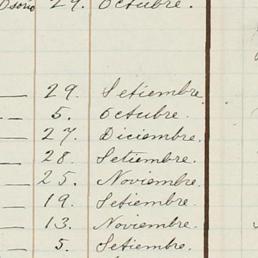 Osorio 29. Octubre.
29. Setiembre.
5. Octubre.
27. Diciembre.
28. Setiembre.
25. Noviembre.
19. Setiembre.
13. Noviembre.
5. Setiembre.